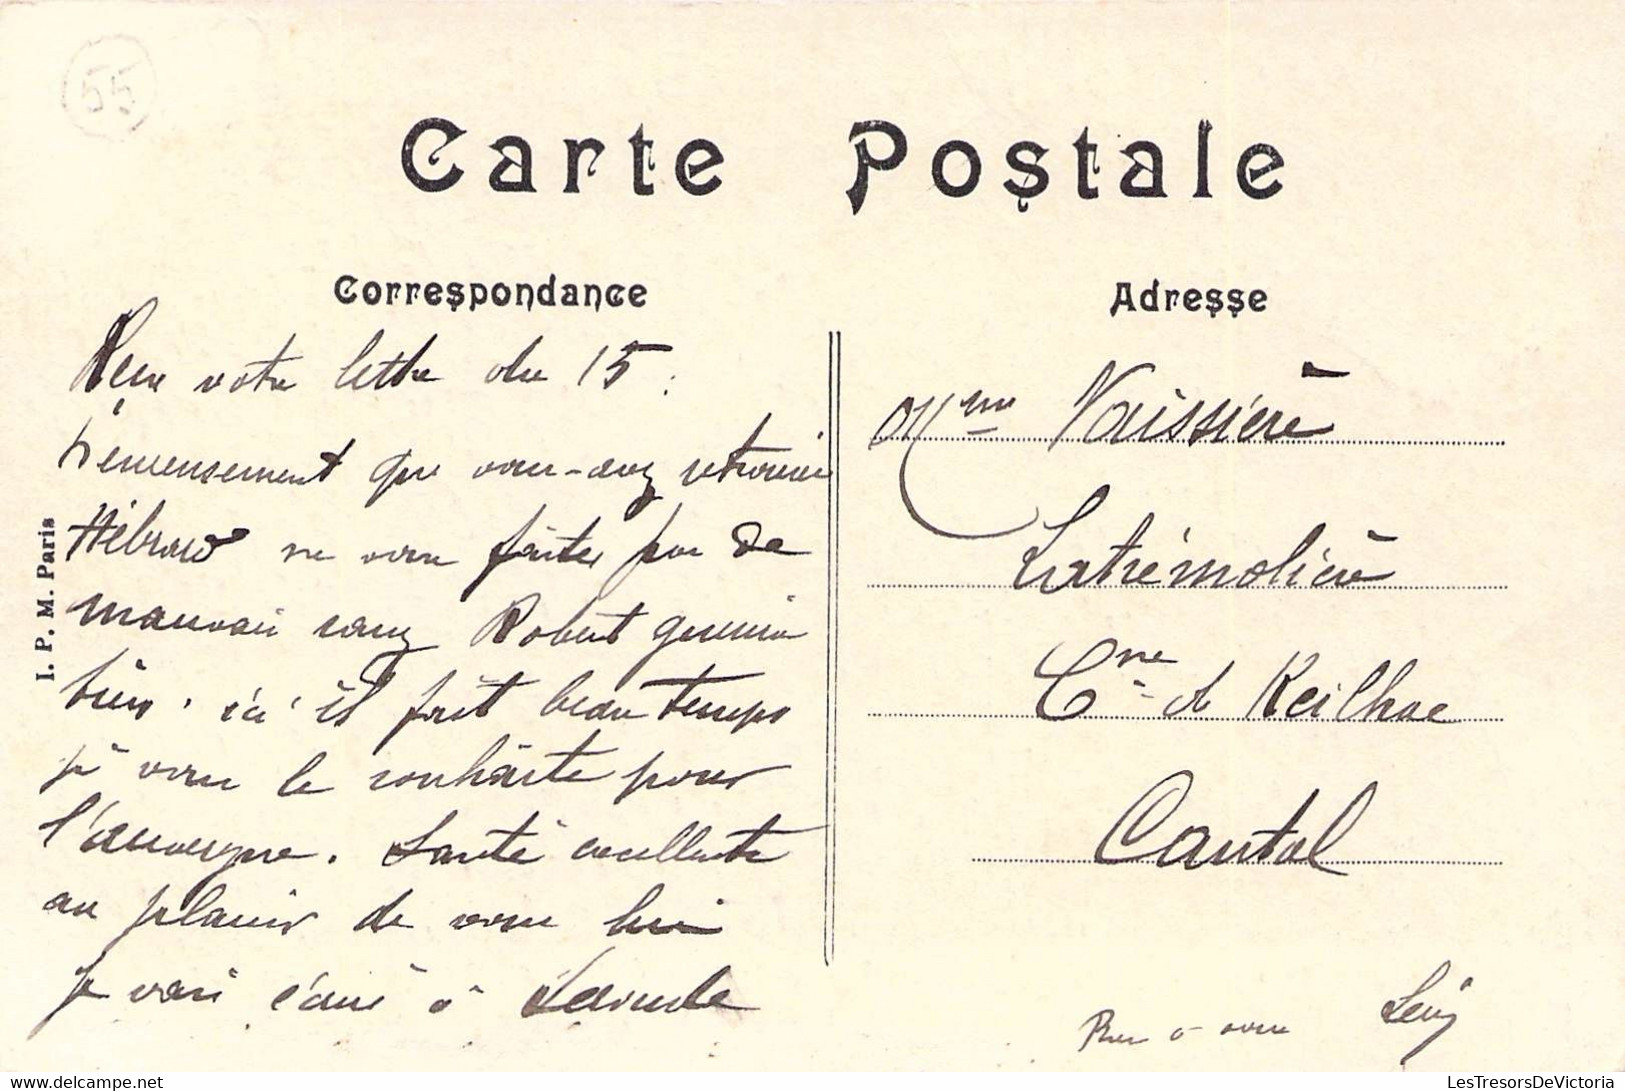 55
Carte Postale
Correspondance
Adresse
Reçu votre lettre du 15.
heureusement que vous-avez retrouvé
Hébrard ne vous faites pas de
mauvais sang Robert guérira
bien. ici il fait beau temps
je vous le souhaite pour
l'auvergne. Santé excellente
au plaisir de vous lire
je vais écrire à
I. P. M. Paris
Mme Vaissière
Latrémolière
Cne de Reilhac
Cantal
à vous
LesTresorsDeVictoria